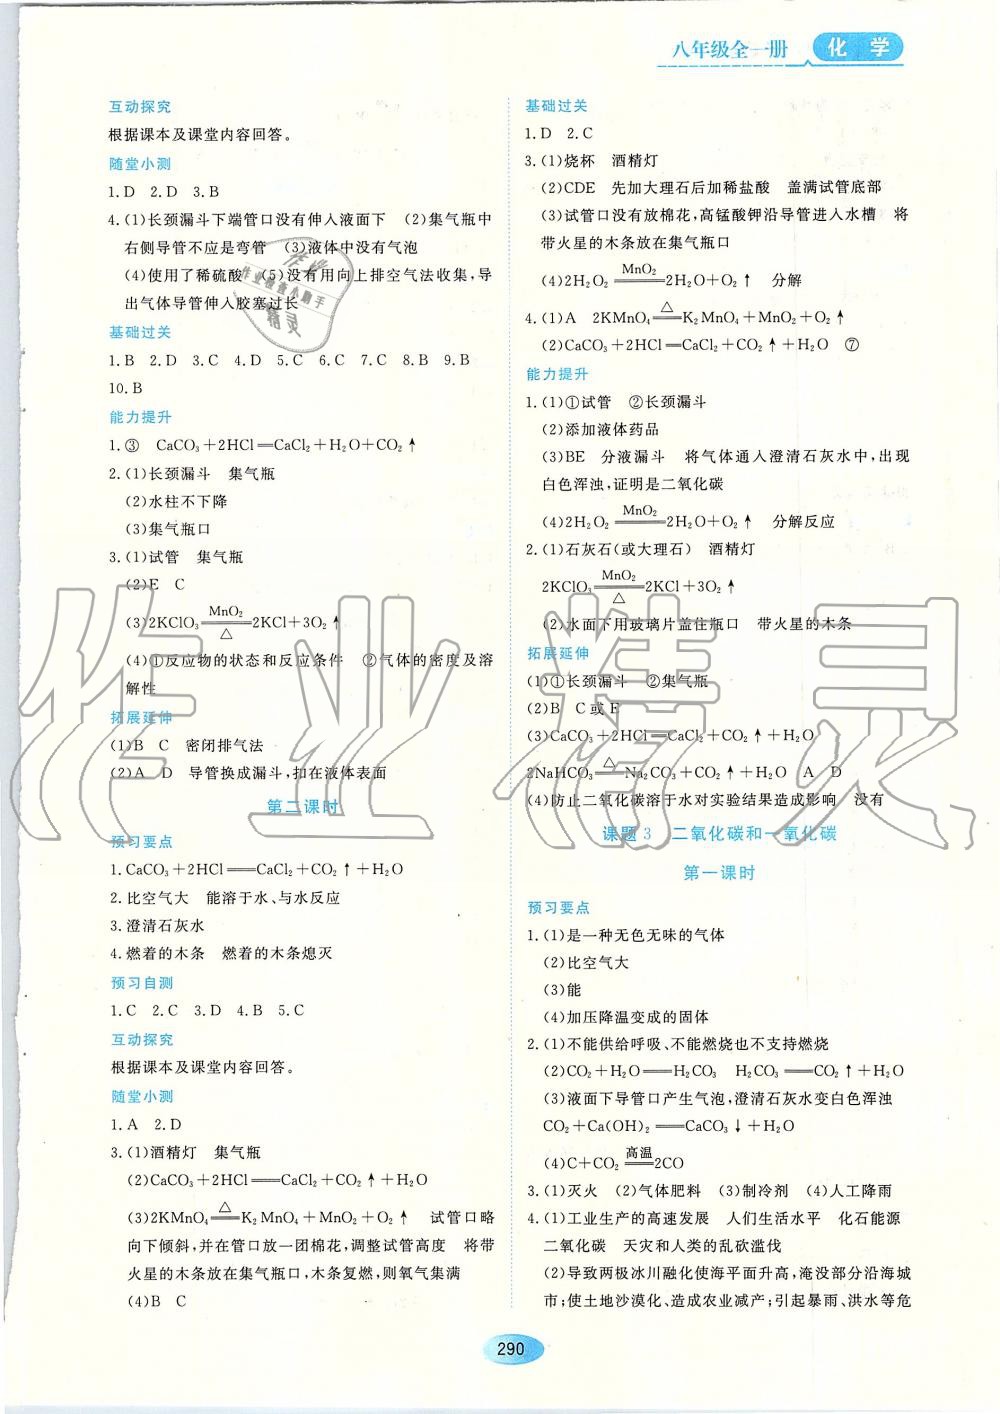 八年级全一册 化 学
互动探究
根据课本及课堂内容回答。
随堂小测
1.D 2.D 3.B
4.(1)长颈漏斗下端管口没有伸入液面下 (2)集气瓶中
右侧导管不应是弯管 (3)液体中没有气泡
(4)使用了稀硫酸 (5)没有用向上排空气法收集,导
出气体导管伸入胶塞过长
基础过关
1.B 2.D 3.C 4.D 5.C 6.C 7.C 8.B 9.B
10.B
能力提升
1.③ CaCO₃+2HCl══CaCl₂+H₂O+CO₂↑
2.(1)长颈漏斗 集气瓶
(2)水柱不下降
(3)集气瓶口
3.(1)试管 集气瓶
(2)E C
(3)2KClO₃ ══(MnO₂/△) 2KCl+3O₂↑
(4)①反应物的状态和反应条件 ②气体的密度及溶
解性
拓展延伸
(1)B C 密闭排气法
(2)A D 导管换成漏斗,扣在液体表面
第二课时
预习要点
1.CaCO₃+2HCl══CaCl₂+CO₂↑+H₂O
2.比空气大 能溶于水、与水反应
3.澄清石灰水
4.燃着的木条 燃着的木条熄灭
预习自测
1.C 2.C 3.D 4.B 5.C
互动探究
根据课本及课堂内容回答。
随堂小测
1.A 2.D
3.(1)酒精灯 集气瓶
(2)CaCO₃+2HCl══CaCl₂+CO₂↑+H₂O
(3)2KMnO₄ ══(△) K₂MnO₄+MnO₂+O₂↑ 试管口略
向下倾斜,并在管口放一团棉花,调整试管高度 将带
火星的木条放在集气瓶口,木条复燃,则氧气集满
(4)B C
基础过关
1.D 2.C
3.(1)烧杯 酒精灯
(2)CDE 先加大理石后加稀盐酸 盖满试管底部
(3)试管口没有放棉花,高锰酸钾沿导管进入水槽 将
带火星的木条放在集气瓶口
(4)2H₂O₂ ══(MnO₂) 2H₂O+O₂↑ 分解
4.(1)A 2KMnO₄ ══(△) K₂MnO₄+MnO₂+O₂↑
(2)CaCO₃+2HCl══CaCl₂+CO₂↑+H₂O ⑦
能力提升
1.(1)①试管 ②长颈漏斗
(2)添加液体药品
(3)BE 分液漏斗 将气体通入澄清石灰水中,出现
白色浑浊,证明是二氧化碳
(4)2H₂O₂ ══(MnO₂) 2H₂O+O₂↑ 分解反应
2.(1)石灰石(或大理石) 酒精灯
2KClO₃ ══(MnO₂/△) 2KCl+3O₂↑
(2)水面下用玻璃片盖住瓶口 带火星的木条
拓展延伸
(1)①长颈漏斗 ②集气瓶
(2)B C或E
(3)CaCO₃+2HCl══CaCl₂+CO₂↑+H₂O
2NaHCO₃ ══(△) Na₂CO₃+CO₂↑+H₂O A D
(4)防止二氧化碳溶于水对实验结果造成影响 没有
课题3 二氧化碳和一氧化碳
第一课时
预习要点
1.(1)是一种无色无味的气体
(2)比空气大
(3)能
(4)加压降温变成的固体
2.(1)不能供给呼吸、不能燃烧也不支持燃烧
(2)CO₂+H₂O══H₂CO₃ H₂CO₃══CO₂↑+H₂O
(3)液面下导管口产生气泡,澄清石灰水变白色浑浊
CO₂+Ca(OH)₂══CaCO₃↓+H₂O
(4)C+CO₂ ══(高温) 2CO
3.(1)灭火 (2)气体肥料 (3)制冷剂 (4)人工降雨
4.(1)工业生产的高速发展 人们生活水平 化石能源
二氧化碳 天灾和人类的乱砍滥伐
(2)导致两极冰川融化使海平面升高,淹没部分沿海城
市;使土地沙漠化、造成农业减产;引起暴雨、洪水等危
290
作业精灵
作业
作业检查小助手
精灵